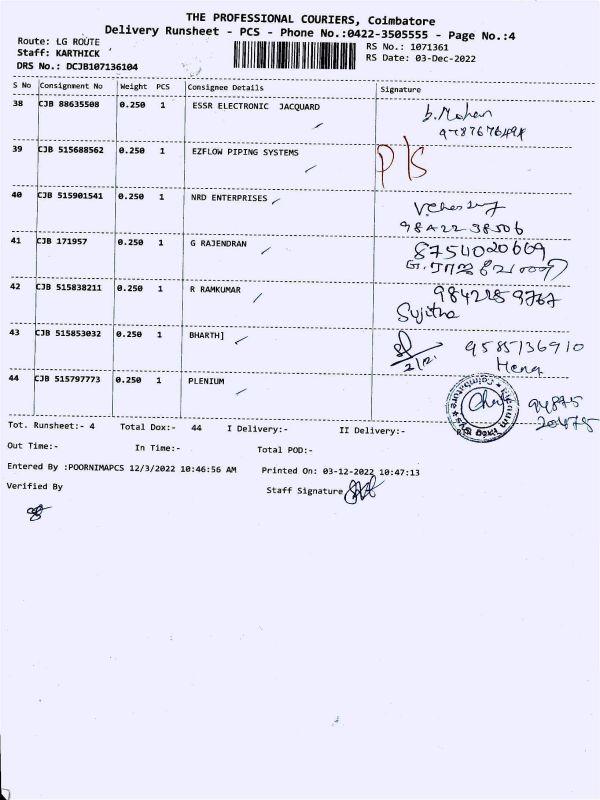 THE PROFESSIONAL COURIERS, Coimbatore
Delivery Runsheet - PCS - Phone No.:0422-3505555 - Page No.:4
Route: LG ROUTE
Staff: KARTHICK
DRS No.: DCJB107136104
RS No.: 1071361
RS Date: 03-Dec-2022
S No Consignment No Weight PCS Consignee Details Signature
38 CJB 88635508 0.250 1 ESSR ELECTRONIC JACQUARD b.Mohan
39 CJB 515688562 0.250 1 EZFLOW PIPING SYSTEMS P/S
40 CJB 515901541 0.250 1 NRD ENTERPRISES
98422 38506
41 CJB 171957 0.250 1 G RAJENDRAN 8754020669
42 CJB 515838211 0.250 1 R RAMKUMAR
Sujitha
43 CJB 515853032 0.250 1 BHARTH] 9585136910
Hena
44 CJB 515797773 0.250 1 PLENIUM 94875
20475
Tot. Runsheet:- 4 Total Dox:- 44 I Delivery:- II Delivery:-
Out Time:- In Time:- Total POD:-
Entered By :POORNIMAPCS 12/3/2022 10:46:56 AM Printed On: 03-12-2022 10:47:13
Verified By Staff Signature